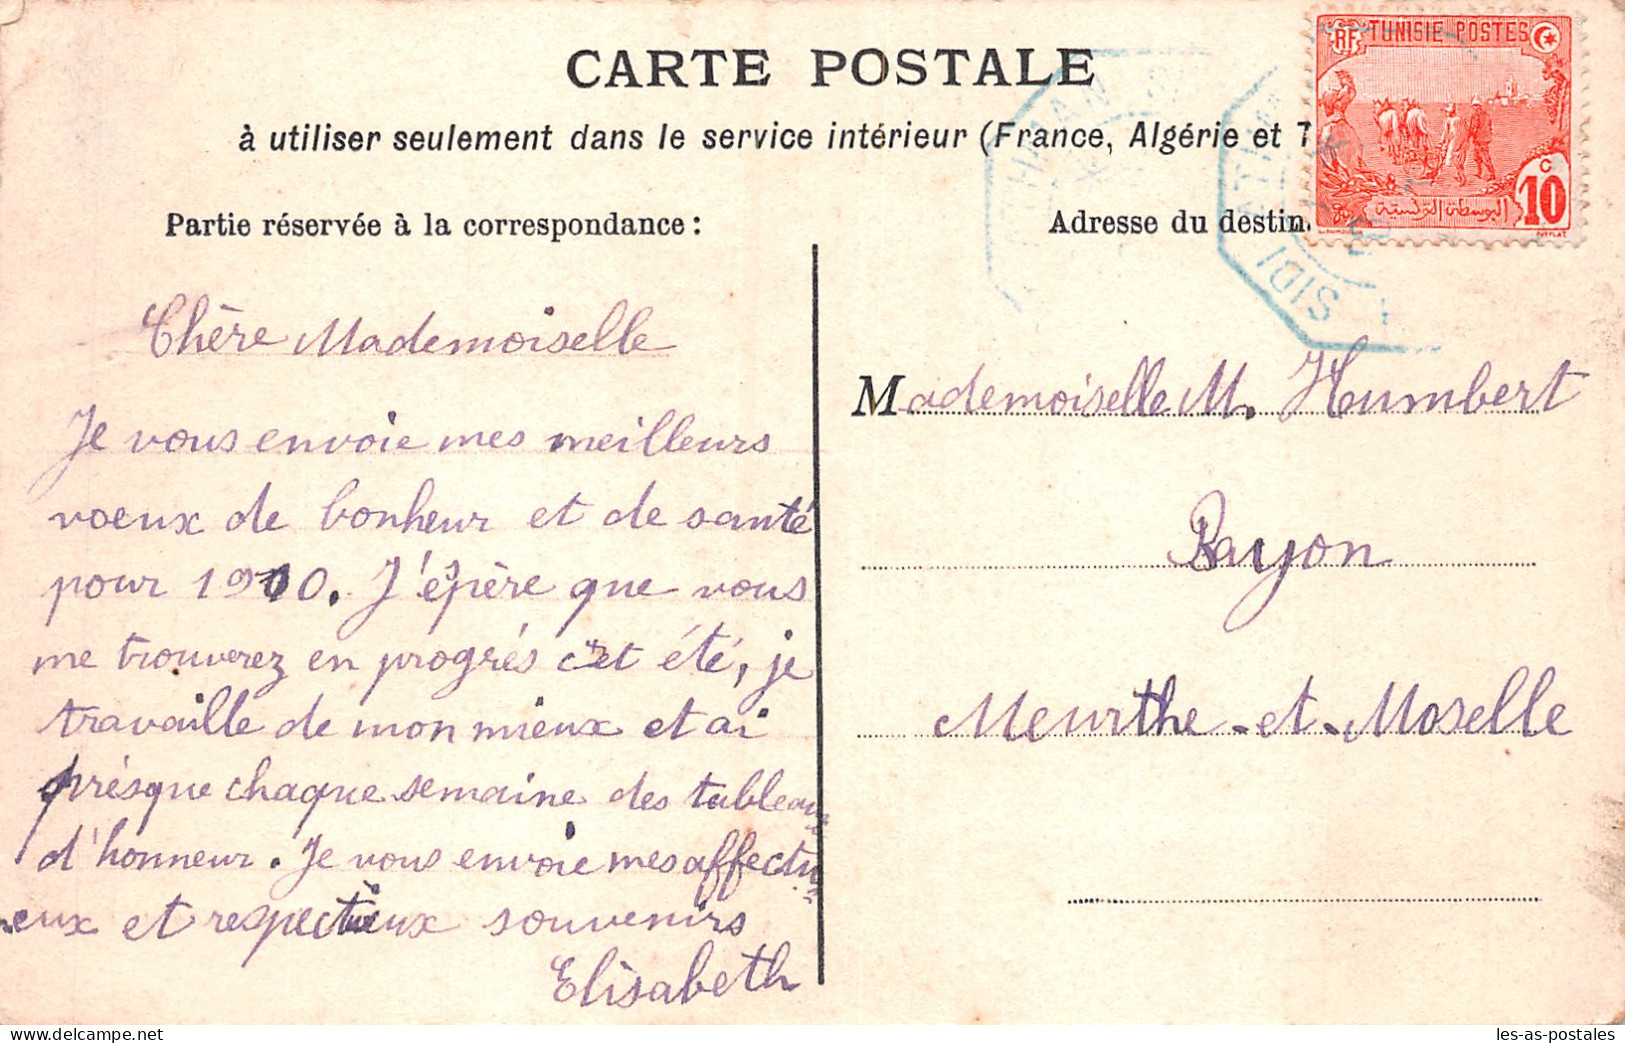 CARTE POSTALE
à utiliser seulement dans le service intérieur (France, Algérie et T
Partie réservée à la correspondance :
Adresse du destin
RF TUNISIE POSTES
10 c
البوسطة التونسية
SIDI ATHMAN
Chère Mademoiselle
Je vous envoie mes meilleurs
voeux de bonheur et de santé
pour 1910. J'éspère que vous
me trouverez en progrés cet été, je
travaille de mon mieux et ai
présque chaque semaine des tableaux
d'honneur. Je vous envoie mes affectu-
eux et respectueux souvenirs
Elisabeth
Mademoiselle M. Humbert
Bayon
Meurthe-et-Moselle
http://www.delcampe.net
les-as-postales